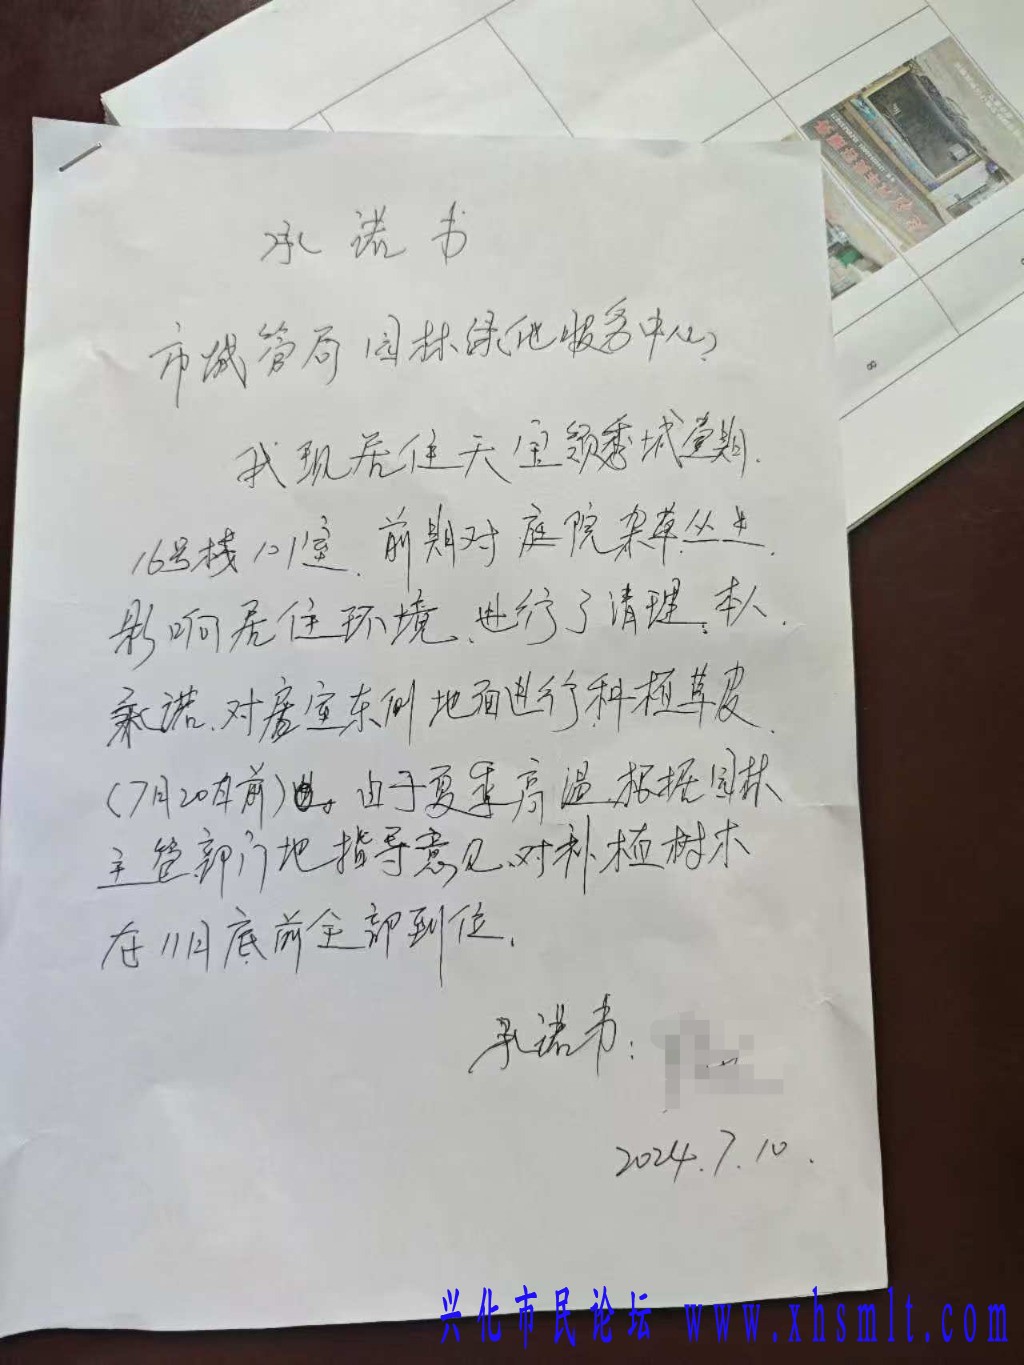 承诺书
市城管局园林绿化服务中心,
我现居住天宝领秀城壹期.
16号楼101室.前期对庭院杂草丛生.
影响居住环境、进行了清理.本人.
承诺、对居室东侧地面进行种植草皮.
(7月20日前)。由于夏季高温、根据园林
主管部门地指导意见、对补植树木
在11月底前全部到位.
承诺书:
2024.7.10.
8
兴化市民论坛 www.xhsmlt.com